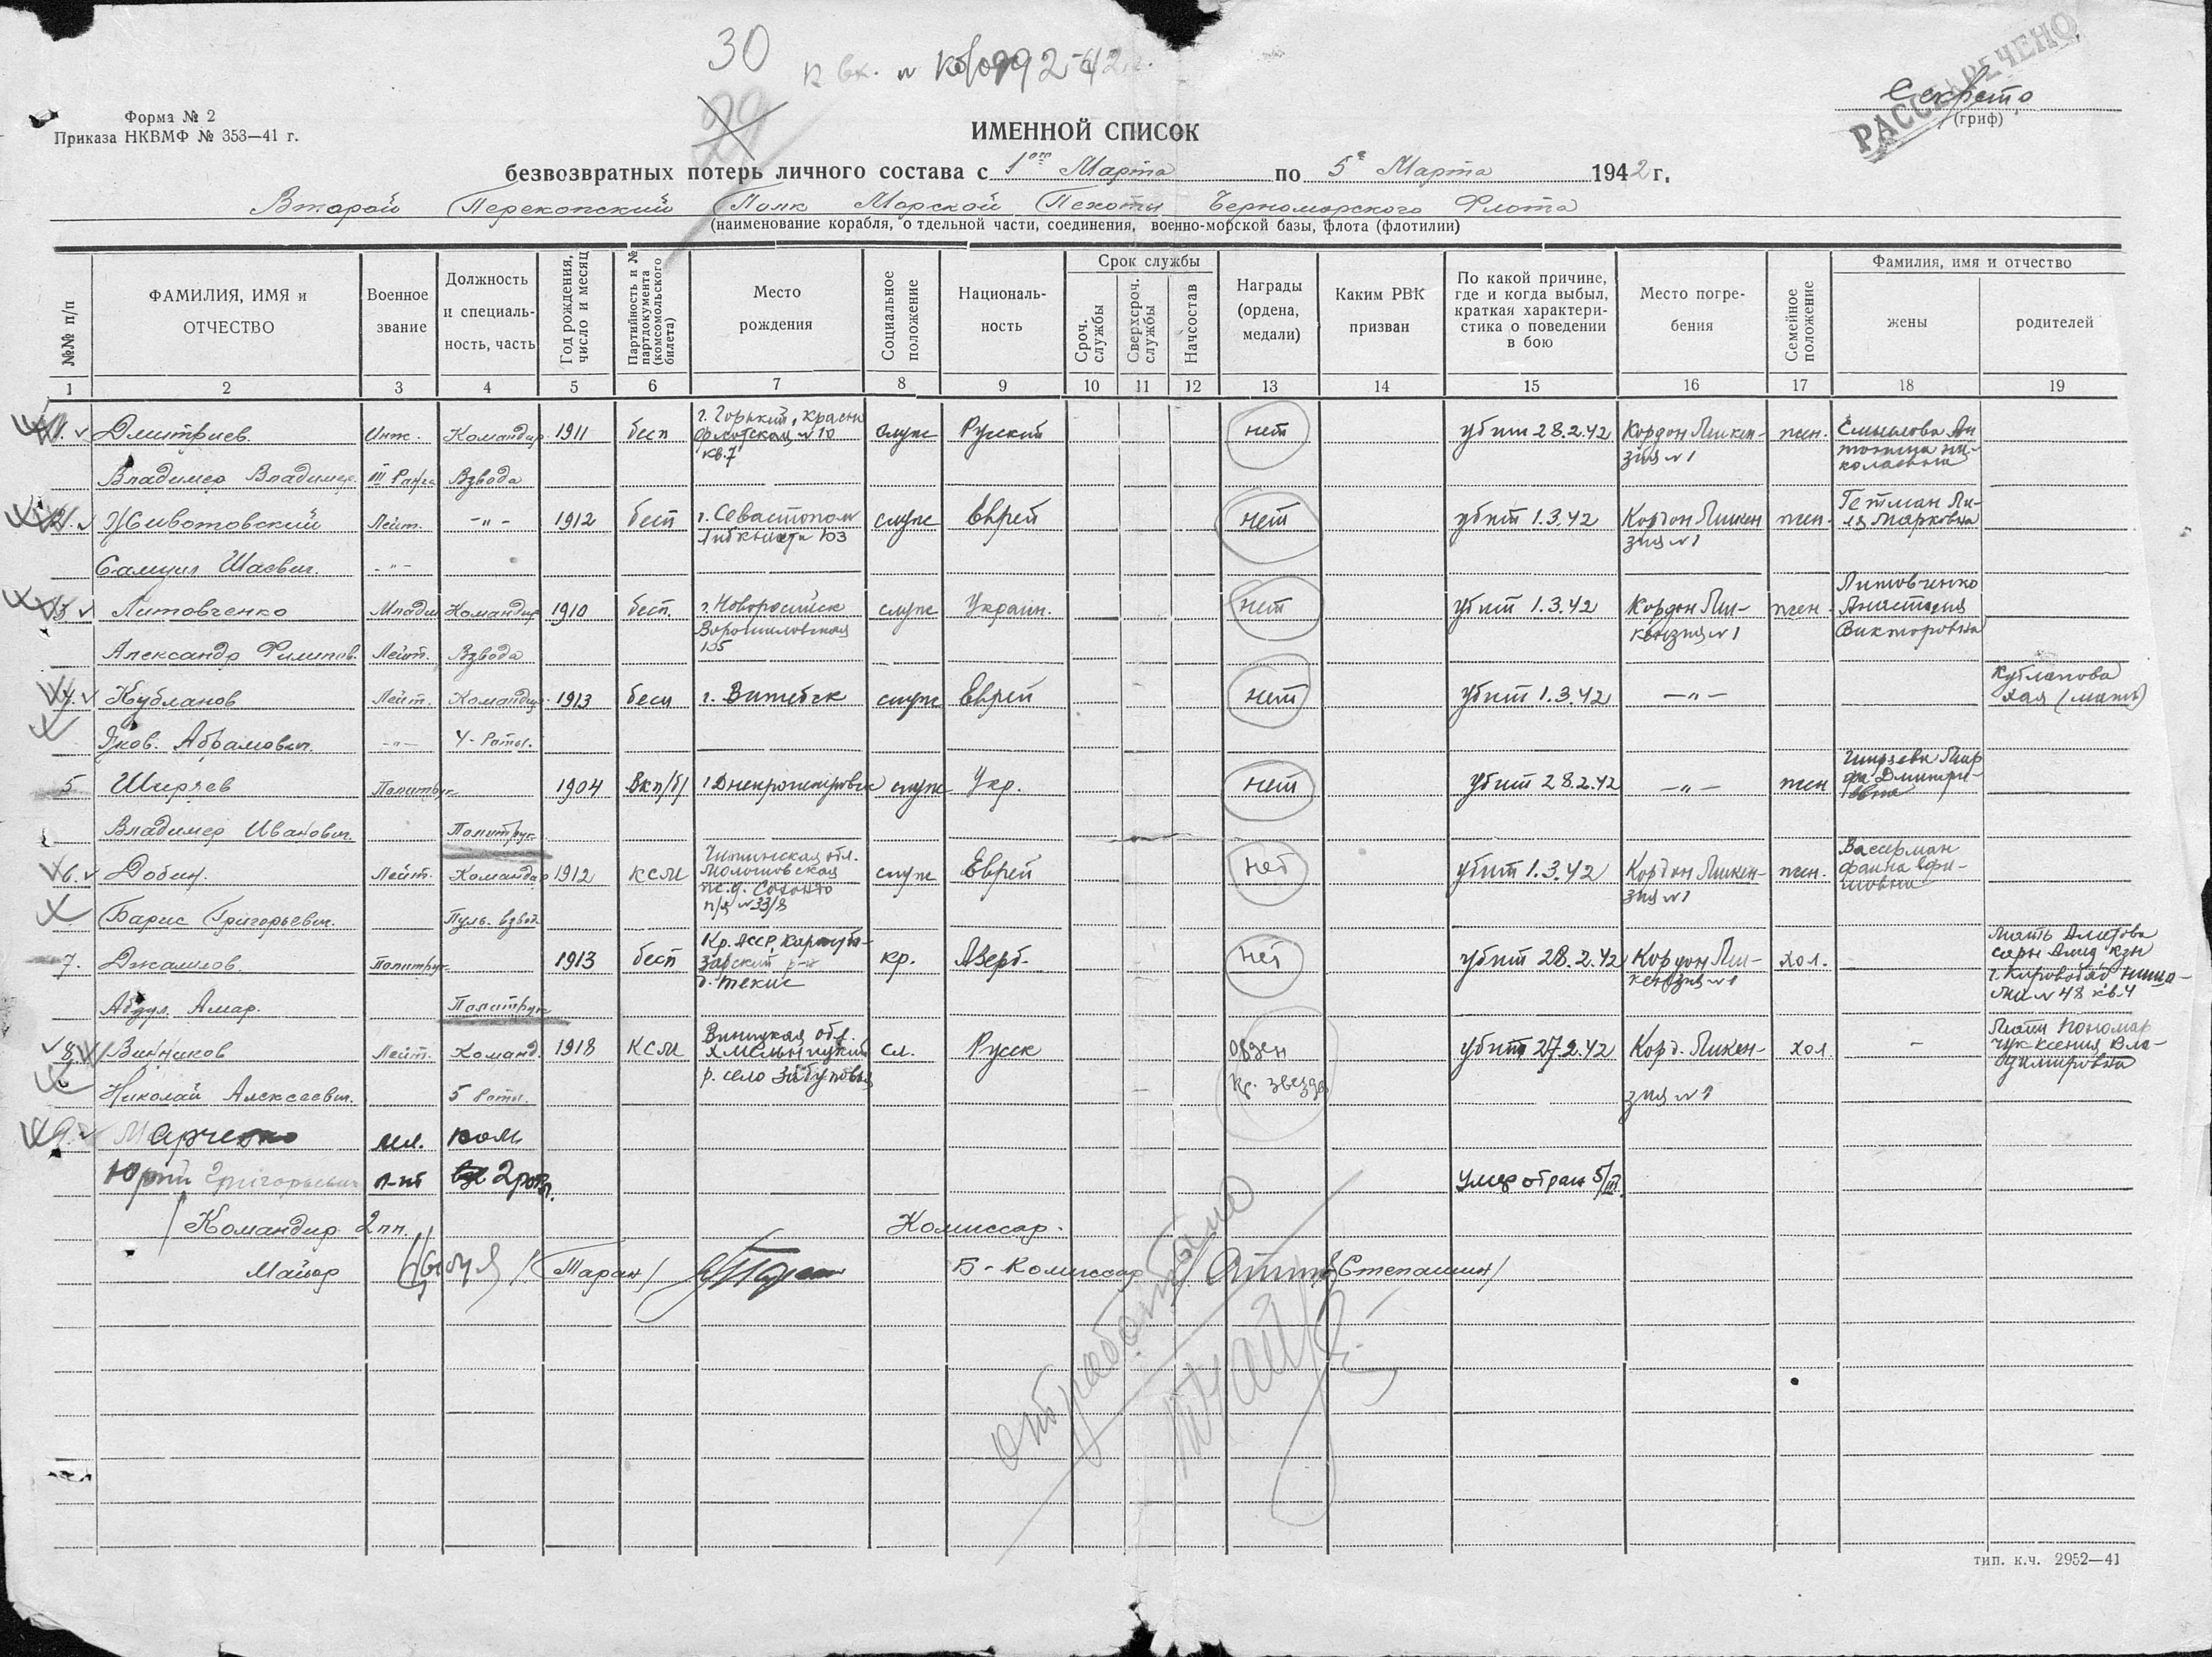 30
к вх. № 0992-42г.
29
Секретно
РАССЕКРЕЧЕНО
(гриф)
Форма № 2
Приказа НКВМФ № 353—41 г.
ИМЕННОЙ СПИСОК
безвозвратных потерь личного состава с 1ого Марта по 5е Марта 1942 г.
Второй Перекопский Полк Морской Пехоты Черноморского Флота
(наименование корабля, отдельной части, соединения, военно-морской базы, флота (флотилии)
№№ п/п
ФАМИЛИЯ, ИМЯ и ОТЧЕСТВО
Военное звание
Должность и специальность, часть
Год рождения, число и месяц
Партийность и № партдокумента (комсомольского билета)
Место рождения
Социальное положение
Националь-ность
Срок службы
Сроч. службы
Сверхсроч. службы
Начсостав
Награды (ордена, медали)
Каким РВК призван
По какой причине, где и когда выбыл, краткая характери-стика о поведении в бою
Место погре-бения
Семейное положение
Фамилия, имя и отчество
жены
родителей
1 2 3 4 5 6 7 8 9 10 11 12 13 14 15 16 17 18 19
1. Дмитриев. Инж. Командир 1911 бесп г. Горький, Красно служ Русский нет убит 28.2.42 Кордон Микен- жен. Смыслова Ан
флотская № 10 зия № 1 тонина Ни-
кв. 7 колаевна
Владимер Владимер. III Ранга Взвода
2. Животовский Лейт. -"- 1912 бесп г. Севастополь служ Еврей нет убит 1.3.42 Кордон Микен жен. Гетман Ли-
Либкнехта 103 зия № 1 ля Марковна
Самуил Шаевич. -"-
3. Литовченко Младш Командир 1910 бесп. г. Новоросийск служ Украин. нет убит 1.3.42 Кордон Ми- жен. Литовченко
Ворошиловская кензия № 1 Анастасия
105 Викторовна
Александр Филипов. Лейт. Взвода
4. Кубланов Лейт. Командир 1913 бесп г. Витебск служ Еврей нет убит 1.3.42 -"- Кубланова
Хая (мать)
Яков. Абрамович. -"- 4-Роты.
5 Ширяев Политрук 1904 Вкп/б/ г. Днепропетровск служ Укр. нет убит 28.2.42 -"- жен Ширяева Мар
фа Дмитри-
евна
Владимер Иванович. Политрук
6. Добин. Лейт. Командир 1912 ксм Читинская обл. служ Еврей нет убит 1.3.42 Кордон Микен- жен. Вассерман
Молотовская зия № 1 фаина ефи-
ж.д. мовна
п/я № 33/8
Борис Григорьевич. Пуль. взвод
7. Джалилов. Политрук 1913 бесп Кр. АССР, Карасуба- кр. Азерб. нет убит 28.2.42 Кордон Ми- хол. Мать Аметова
зарский р-н кензия № 1 сары Амед кзы
г. Кировобад Низа-
ми № 48 кв. 4
Абдул. Амар. Политрук
8. Винников Лейт. Команд. 1918 КСМ Виницкая обл. сл. Русск Орден убит 27.2.42 Корд. Микен- хол - Мать Пономар
Хмельницкий Кр. звезда зия № 1 чук Ксения Вла-
р. село димировна
Николай Алексеевич. 5 роты.
9. Марченко мл. ком
Юрий Григорьевич л-нт 2 роты. Умер от ран 5/III.
Командир 2 пп. Комиссар.
Майор /Таран/ Б-Комиссар /Степашин/
отработано
тип. к.ч. 2952—41